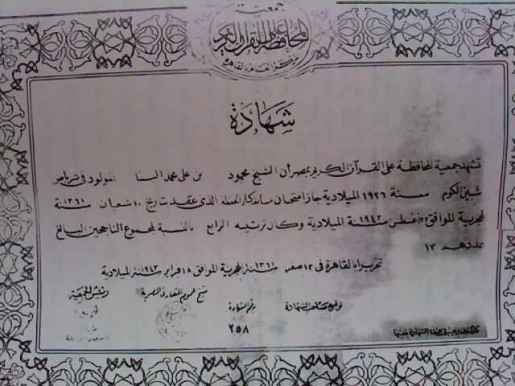 جمعية
المحافظة على القرآن الكريم
شهادة
تشهد جمعية المحافظة على القرآن الكريم بمصر أن الشيخ محمود بن على محمد البنا المولود فى
شبين الكوم سنة ١٩٢٦ الميلادية جاز امتحان الذى عقد بتاريخ ١٠ شعبان سنة ١٣٦١
الهجرية الموافق أغسطس سنة ١٩٤٢ الميلادية وكان ترتيبه الرابع بالنسبة لمجموع الناجحين البالغ
عددهم ١٣
تحريرا بالقاهرة فى ١٢ صفر سنة الهجرية الموافق ١٨ فبراير ١٩٤٣ الميلادية
توقيع صاحب الشهادة
رقم الشهادة
ختم عموم
رئيس الجمعية
٢٥٨